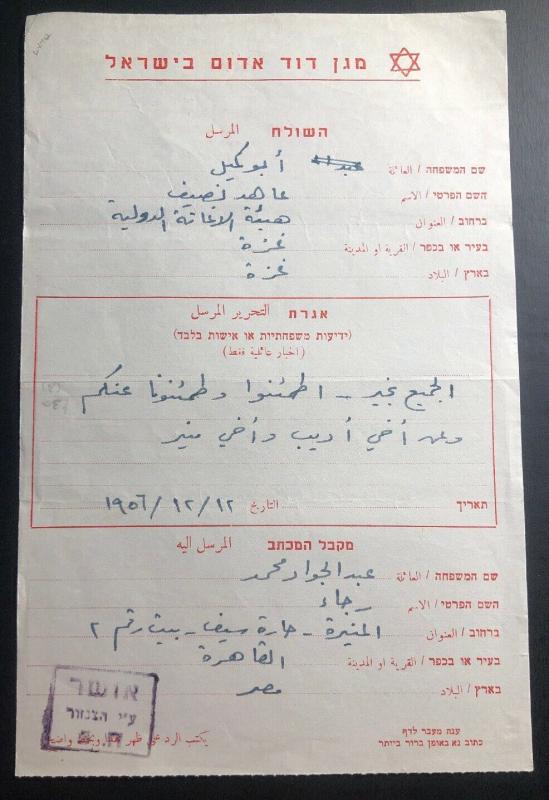 מגן דוד אדום בישראל
השולח المرسل
שם המשפחה / العائلة أبو كميل
השם הפרטי / الاسم عاهد نصيف
ברחוב / العنوان هيئة الاغاثة الدولية
בעיר או בכפר / القرية او المدينة غزة
בארץ / البلاد غزة
אגרת التحرير المرسل
(ידיעות משפחתיות או אישות בלבד)
(اخبار عائلية فقط)
الجميع بخير - اطمئنوا وطمئنونا عنكم
وعن أخي أديب وأخي منير
תאריך التاريخ ١٩٥٦/١٢/١٢
מקבל המכתב المرسل اليه
שם המשפחה / العائلة عبد الجواد محمد
השם הפרטי / الاسم رجاء
ברחוב / العنوان المنيرة - حارة سيف - بيت رقم ٢
בעיר או בכפר / القرية او المدينة القاهرة
בארץ / البلاد مصر
אושר
ע"י הצנזור
ענה מעבר לדף
כתוב נא באופן ברור ביותר
يكتب الرد على ظهر